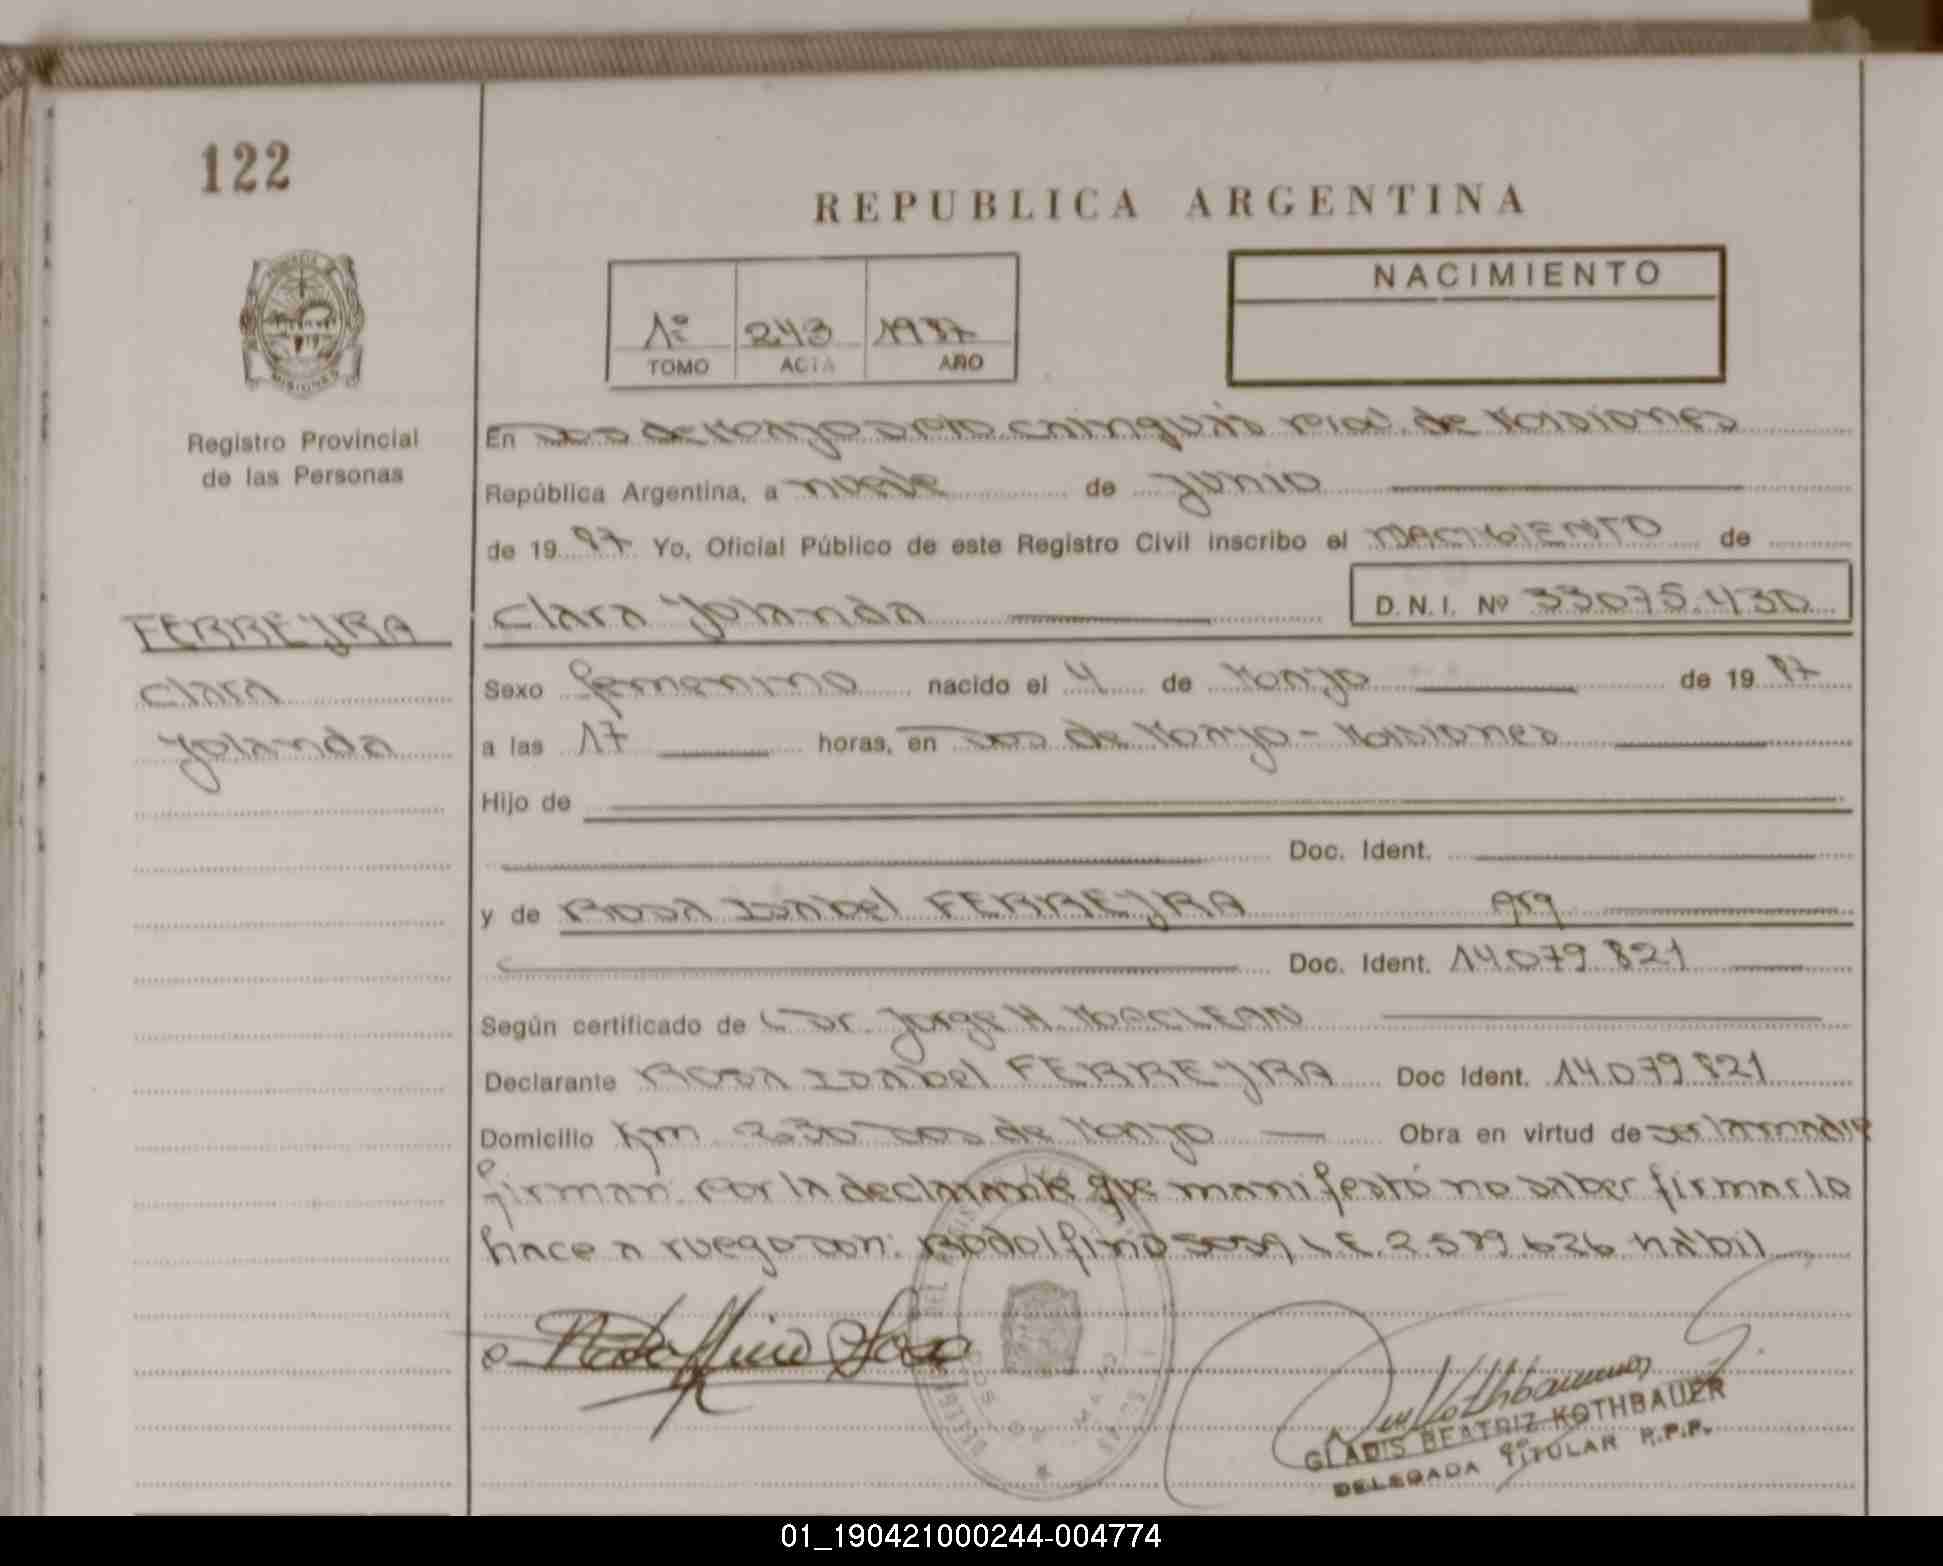 122
REPUBLICA ARGENTINA
NACIMIENTO
1º 243 1987
TOMO ACTA AÑO
Registro Provincial
de las Personas
En Dos de Mayo Dpto. Cainguás Pcial. de Misiones
República Argentina, a nueve de junio
de 19 87 Yo, Oficial Público de este Registro Civil inscribo el NACIMIENTO de
FERREYRA
Clara
Yolanda
Clara Yolanda D.N.I. Nº 33075.430
Sexo femenino nacido el 4 de Mayo de 19 87
a las 17 horas, en Dos de Mayo - Misiones
Hijo de
Doc. Ident.
y de Rosa Isabel FERREYRA arg
Doc. Ident. 14.079.821
Según certificado de Dr. Jorge H. MACLEAN
Declarante Rosa Isabel FERREYRA Doc Ident. 14.079.821
Domicilio Km 230 Dos de Mayo Obra en virtud de ser la madre
firman: Por la declarante que manifestó no saber firmar lo
hace a ruego don: Rodolfino Sosa L.E. 2.589.626 hábil
Rodolfino Sosa
DOS DE MAYO
GLADIS BEATRIZ KOTHBAUER
DELEGADA TITULAR R.P.P.
01_190421000244-004774